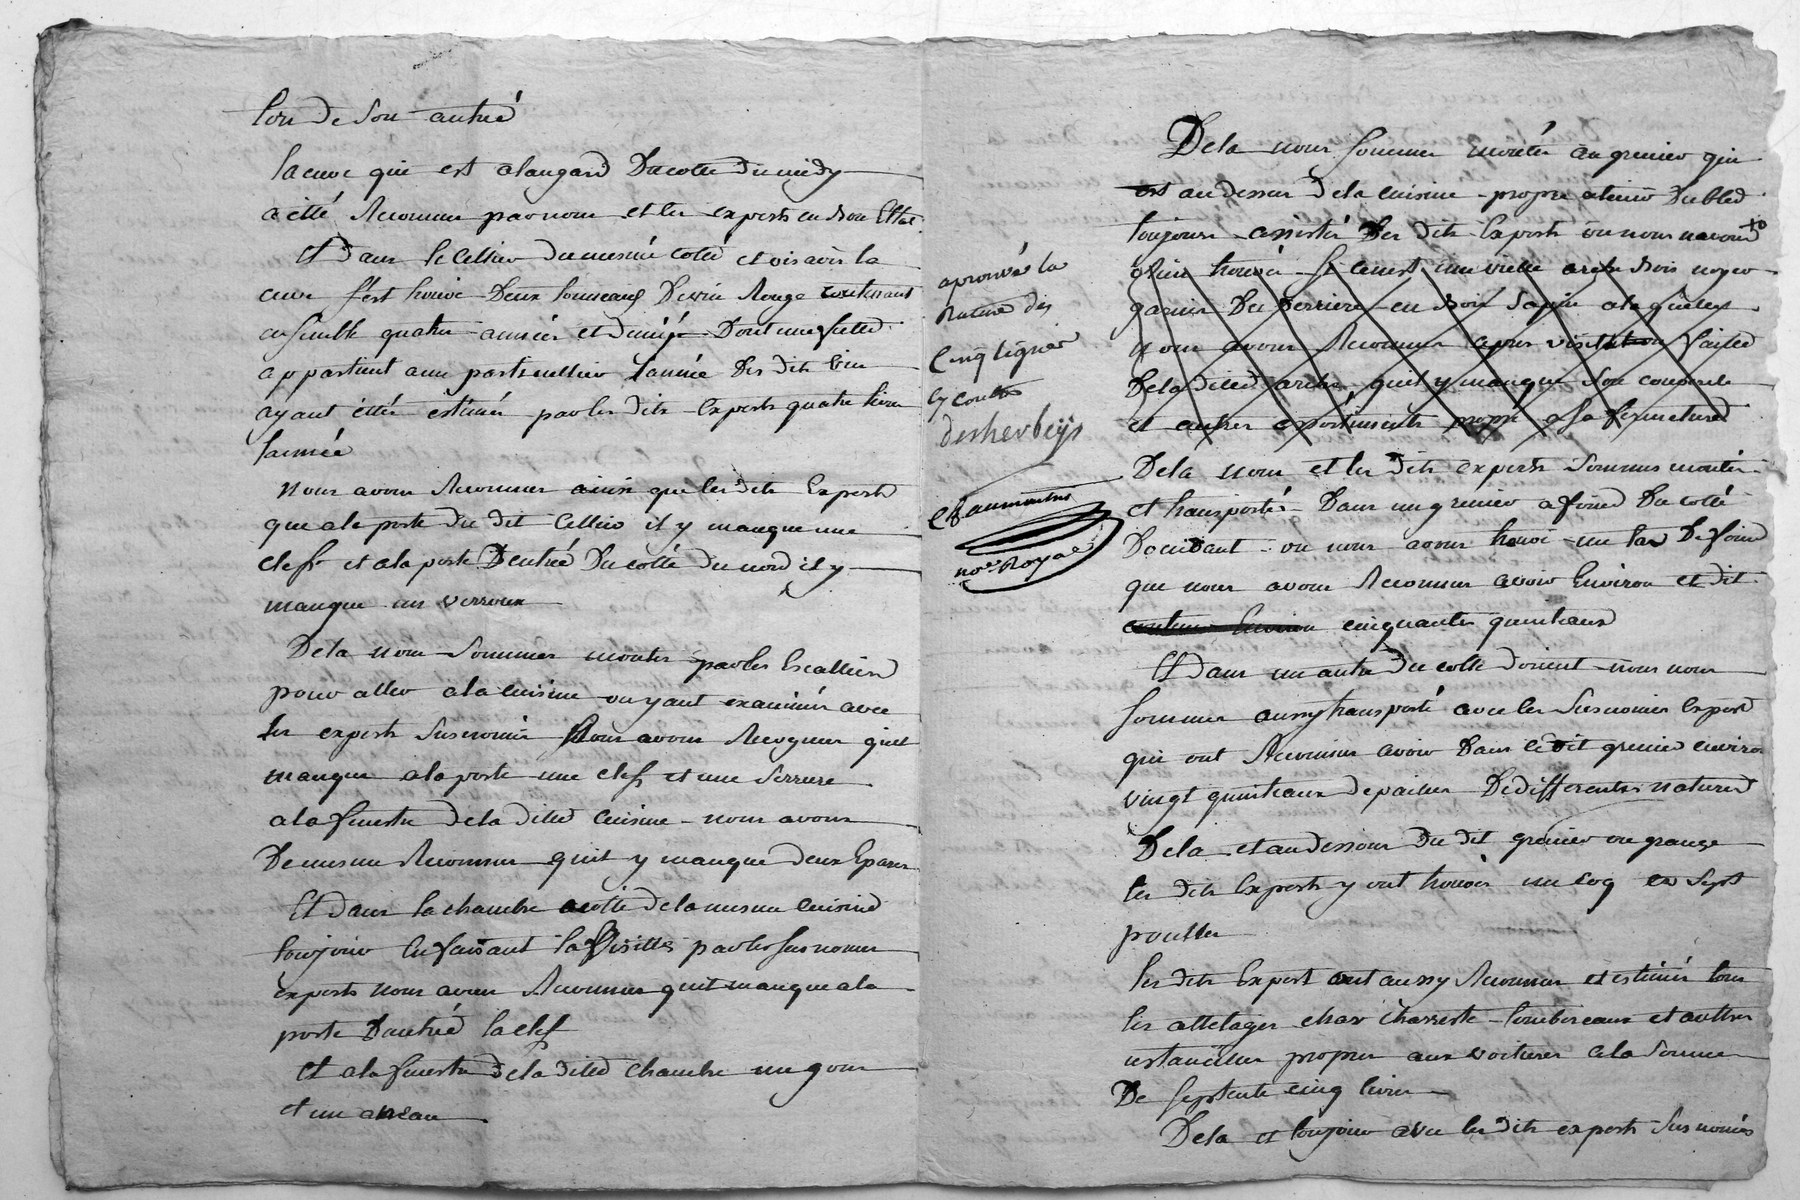 lors de son antreé
la cuve qui est a langard Du cotte du midy
a étté Reconnue par nous et les experts en Bon Ettat
Et dans le Cellier du mesme cotté et vis avis la
cuve sest trouve Deux tonneaux De vin Rouge contenant
ensemble quatre annés et demÿe Dont une ditte
appartient aux particullier lannée Des dits vin
ayant étté estimée par les dits Experts quatre livre
lannée
Nous avons Reconnus ainsi que les dits Experts
que a la porte du dit Cellier il y manque une
clef et a la porte D'entreé Du cotté du nord il y
manque un verroux
De la nous Sommes montés par les Escalliers
pour aller a la cuisine ou yant examinés avec
les experts Susnomés Nous avons Recognus quil
manque a la porte une clef et une Serrure
a la fenestre de la ditte Cuisine nous avons
De mesme Reconnus quil y manque deux Epares
Et dans la chambre a cotté de la mesme Cuisine
toujour En faisant la Visitte par les susnomes
experts nous avons Reconnus quil manque a la
porte Dantreé la clef
Et a la fenestre de la ditte chambre un gons
et un aneau
aprouvé la
Rature des
Cinq lignes
cy contre
desherbeÿs
Chaumartin
nore Royal
De la nous sommes montés au grenier qui
est au dessus de la cuisine propre a tenir Du bled
toujours assistés Des dits Experts ou nous navons
Rien trouvé Si cenest une vielle arche Bois noyer
garnie Du Derriere en Bois Sapin a laquelle
Nous avons Reconnus apres visitte faitte
De la ditte arche quil y manque Son couvercle
et autres apartiments propre a Sa fermeture
De la nous et les dits experts Sommes montés
et transportés Dans un grenier a foins Du cotté
Doccidant ou nous avons trouvé un tas De foins
que nous avons Reconnus avoir Environ et dit
contenir Environ cinquantes quintaux
Et dans un autre du cotté dorient nous nous
sommes aussy transporté avec les Susnomés Expert
qui ont Reconnus avoir Dans le dit grenier environ
vingt quintaux de pailles De differentes natures
De la et au dessous Du dit grenier ou grange
les dits Experts y ont trouvés un coq et Sept
poulles
les dits Expert ont aussy Reconnus et estimés tous
les attelages char Charrette tombereaux et auttres
ustancilles propres aux voitures a la Somme
De septente cinq livres
De la et toujour avec les dits experts Susnomés